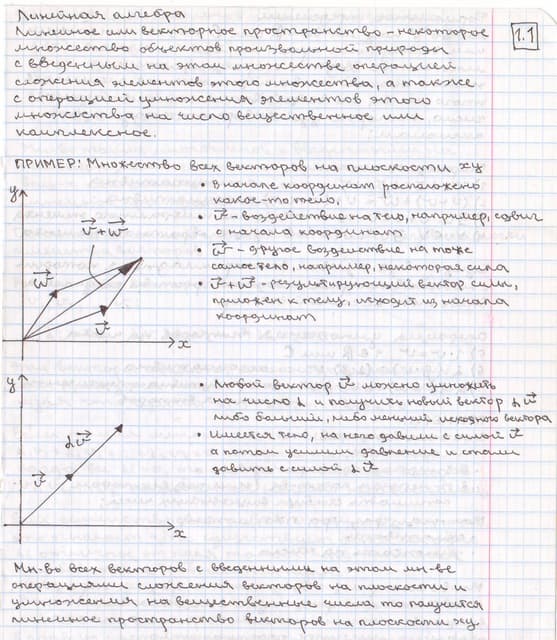 Линейная алгебра
1.1
Линейное или векторное пространство - некоторое
множество объектов произвольной природы
с введенным на этом множестве операцией
сложения элементов этого множества, а также
с операцией умножения элементов этого
множества на число вещественное или
комплексное.
ПРИМЕР: Множество всех векторов на плоскости xy
y
v + w
w
v
x
• В начале координат расположено
какое-то тело.
• v - воздействие на тело, например, сдвиг
с начала координат
• w - другое воздействие на тоже
самое тело, например, некоторая сила
• v + w - результирующий вектор силы,
приложен к телу, исходит из начала
координат
y
αv
v
x
• Любой вектор v можно умножить
на число α и получить новый вектор αv
либо больший, либо меньший исходного вектора
• Имеется тело, на него давили с силой v
а потом усилили давление и стали
давить с силой αv
Мн-во всех векторов с введенными на этом мн-ве
операциями сложения векторов на плоскости и
умножения на вещественные числа то получится
линейное пространство векторов на плоскости xy.